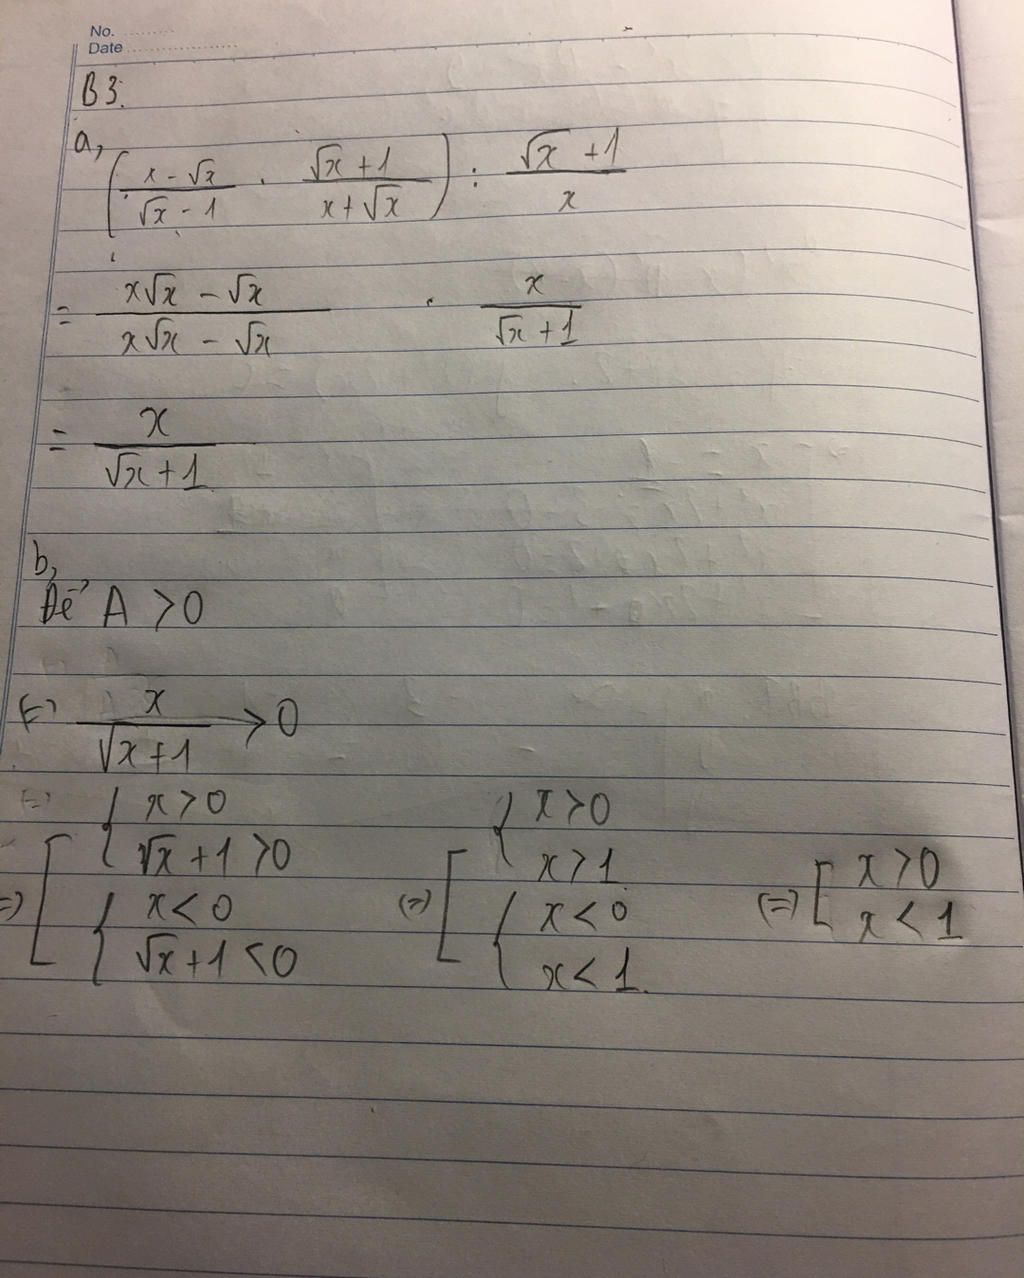 No. ..........
Date ......................
B3.
a, ( (x - √x)/(√x - 1) . (√x + 1)/(x + √x) ) : (√x + 1)/x
= (x√x - √x)/(x√x - √x) . x/(√x + 1)
= x/(√x + 1)
b,
Để A > 0
(=) x/(√x+1) > 0
(=) [ { x > 0 ; √x + 1 > 0 ; { x < 0 ; √x + 1 < 0 (=) [ { x > 0 ; x > 1 ; { x < 0 ; x < 1. (=) [ x > 0 ; x < 1